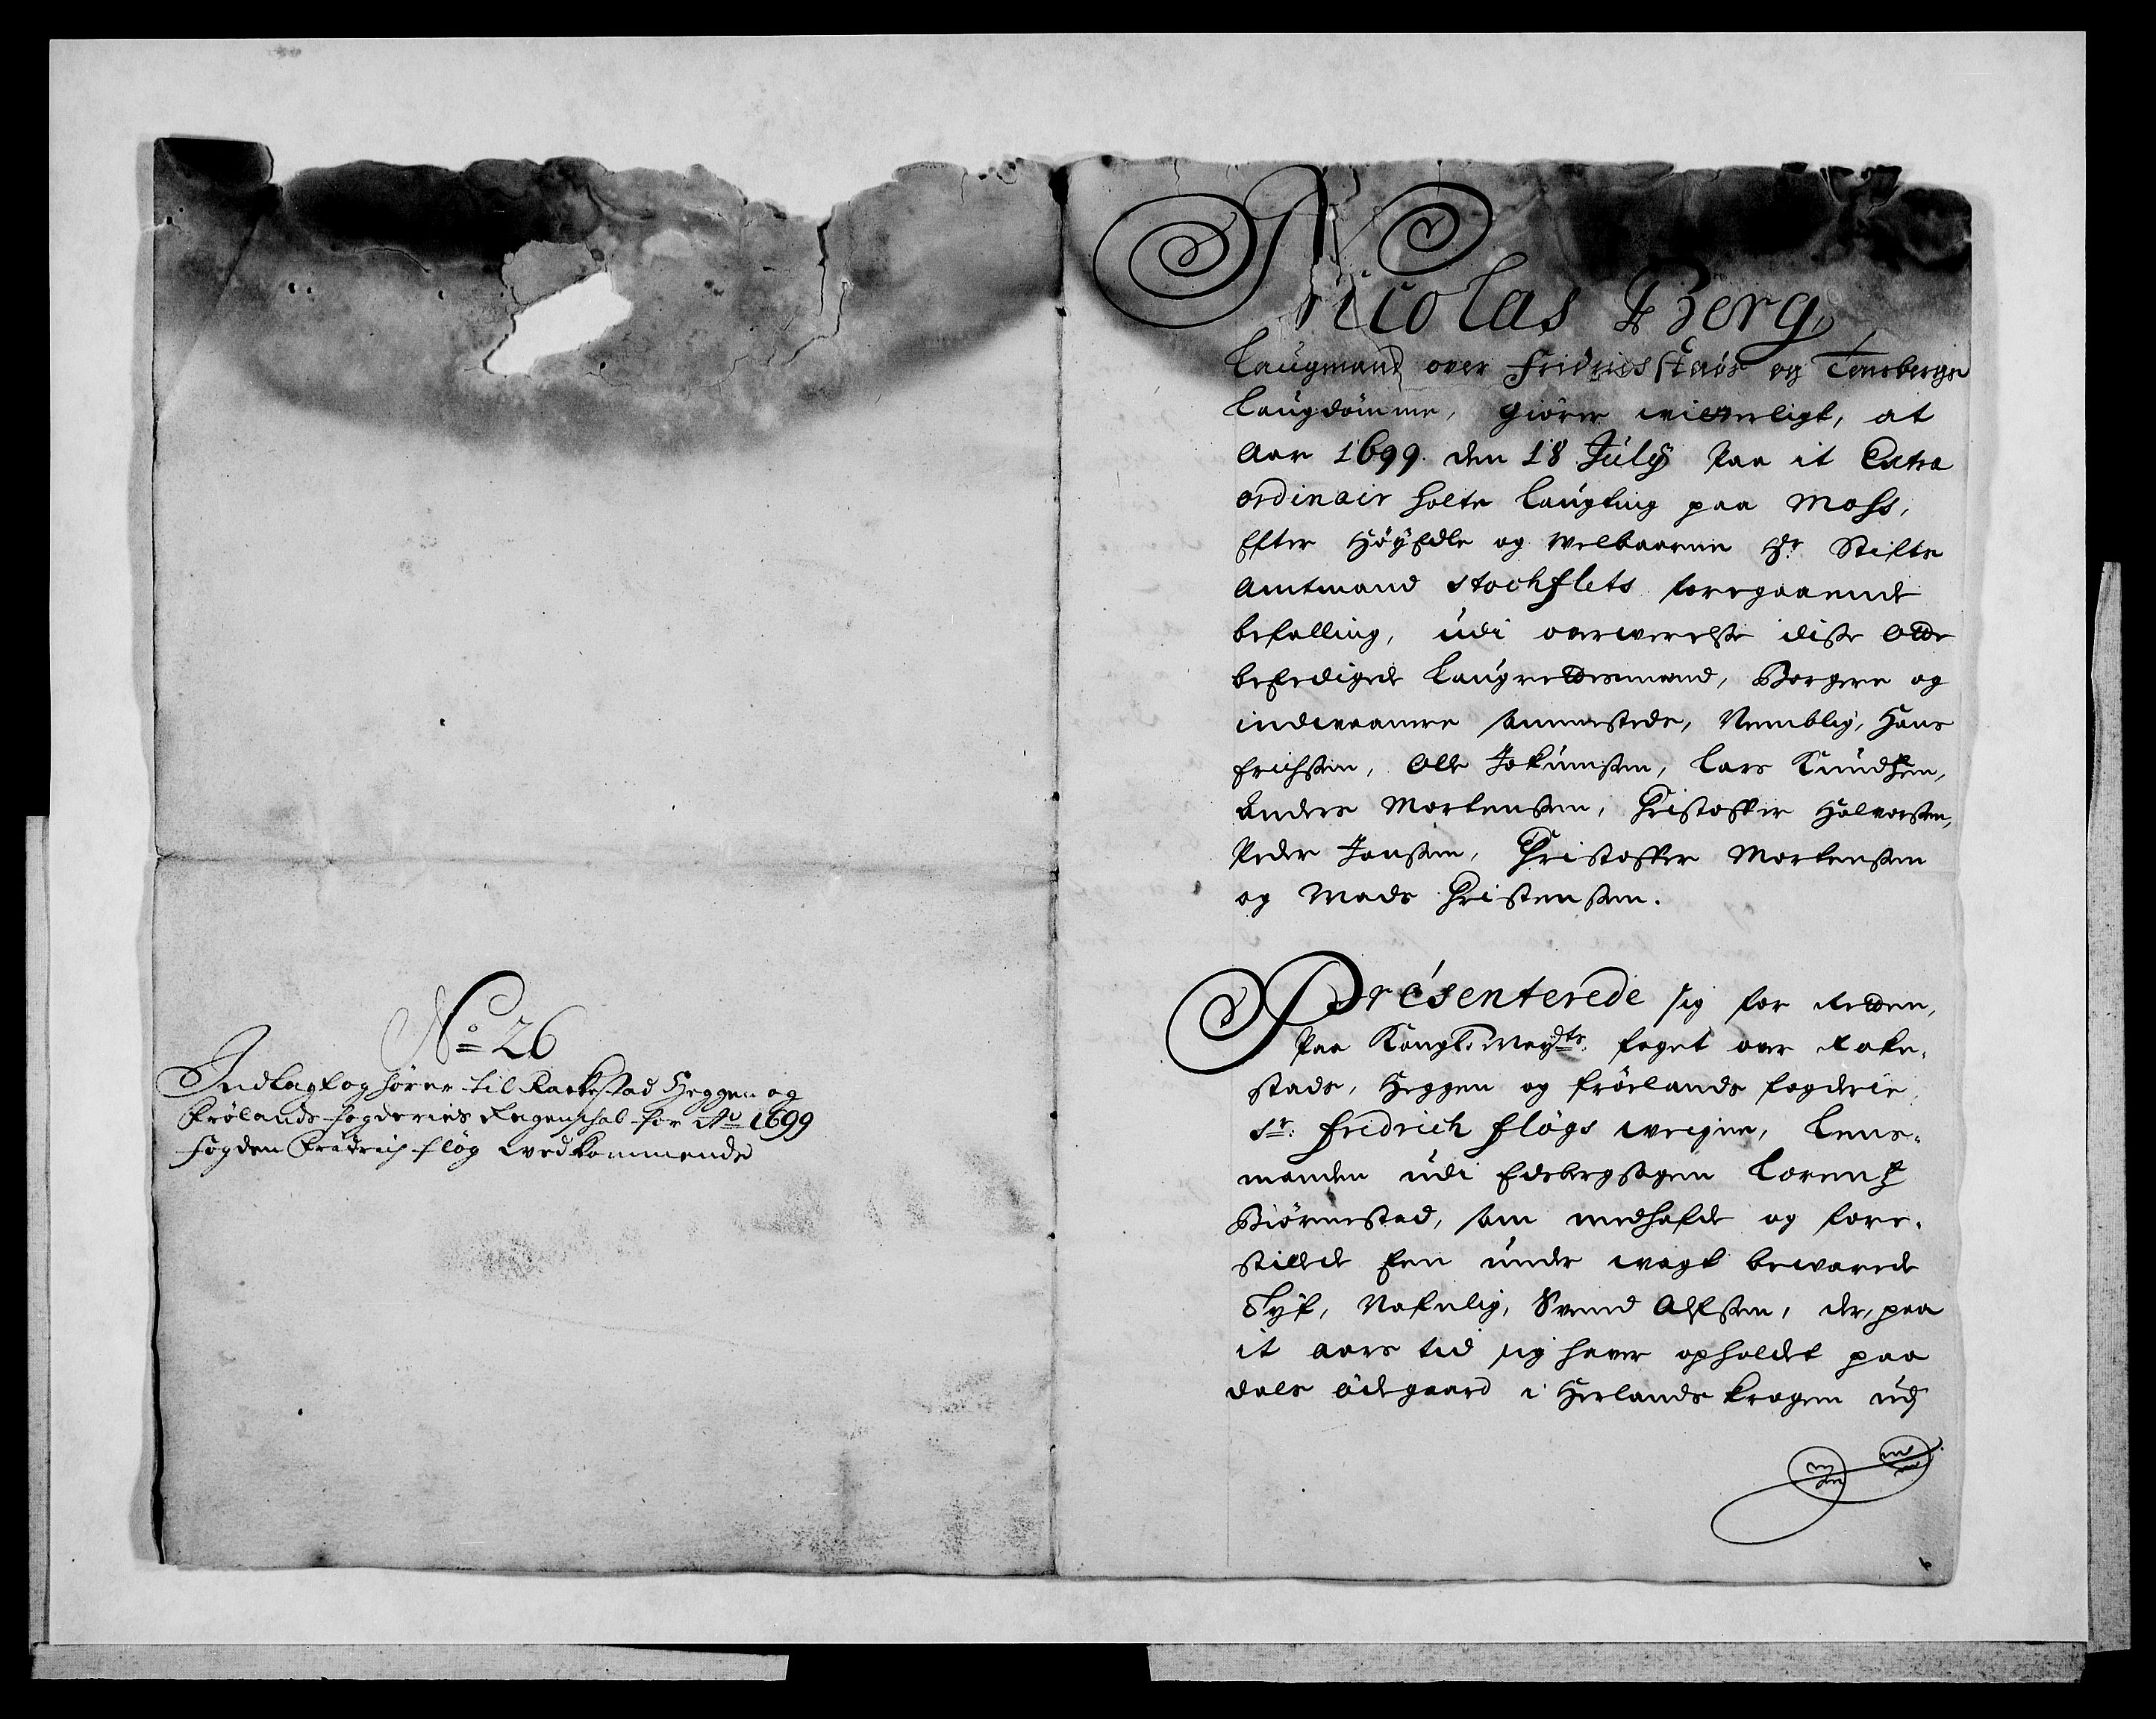 No 26
Indlagt og hörer til Rackestad Heggen og
Frölands fogderies Regenschab for Ao 1699
fogden Fridrich flög vedkommende
Nicolas Berg,
Laugmand over Fridrichstads og Tonsbergs
Laugdömme, giörer witterligt, at
Aar 1699 den 18 Julij paa it Extra
ordinair holte Laugting paa Moss,
Efter HöyEdle og Welbaarne Hr. Stifts
Amtmand Stochflets foregaaende
befalling, udi overwerelse disse otte
beEedigede Laugrettesmænd, Borgere og
indwaanere sammesteds, Nemblig, Hans
Erichssen, Olle Jokumssen, Lars Knudssen,
Anders Mortenssen, Christoffer Halvorssen,
Peder Jonssen, Christoffer Mortenssen
og Mads Christenssen.
Præsenterede sig for Retten,
Paa Kongl: Maÿts: foget over Rake-
stads, Heggen og Frölands fogderie
Sr: Fridrich Flögs weigne, Lens-
manden udi Edsbergsogen Lorentz
Biörnestad, som medhafde og fore-
stillede Een under wagt bewarede
Tyf, Nafnlig, Svend Olssen, der, paa
it aars tid sig hawer opholdet paa
Dals ödegaard i Herlands krogen udj